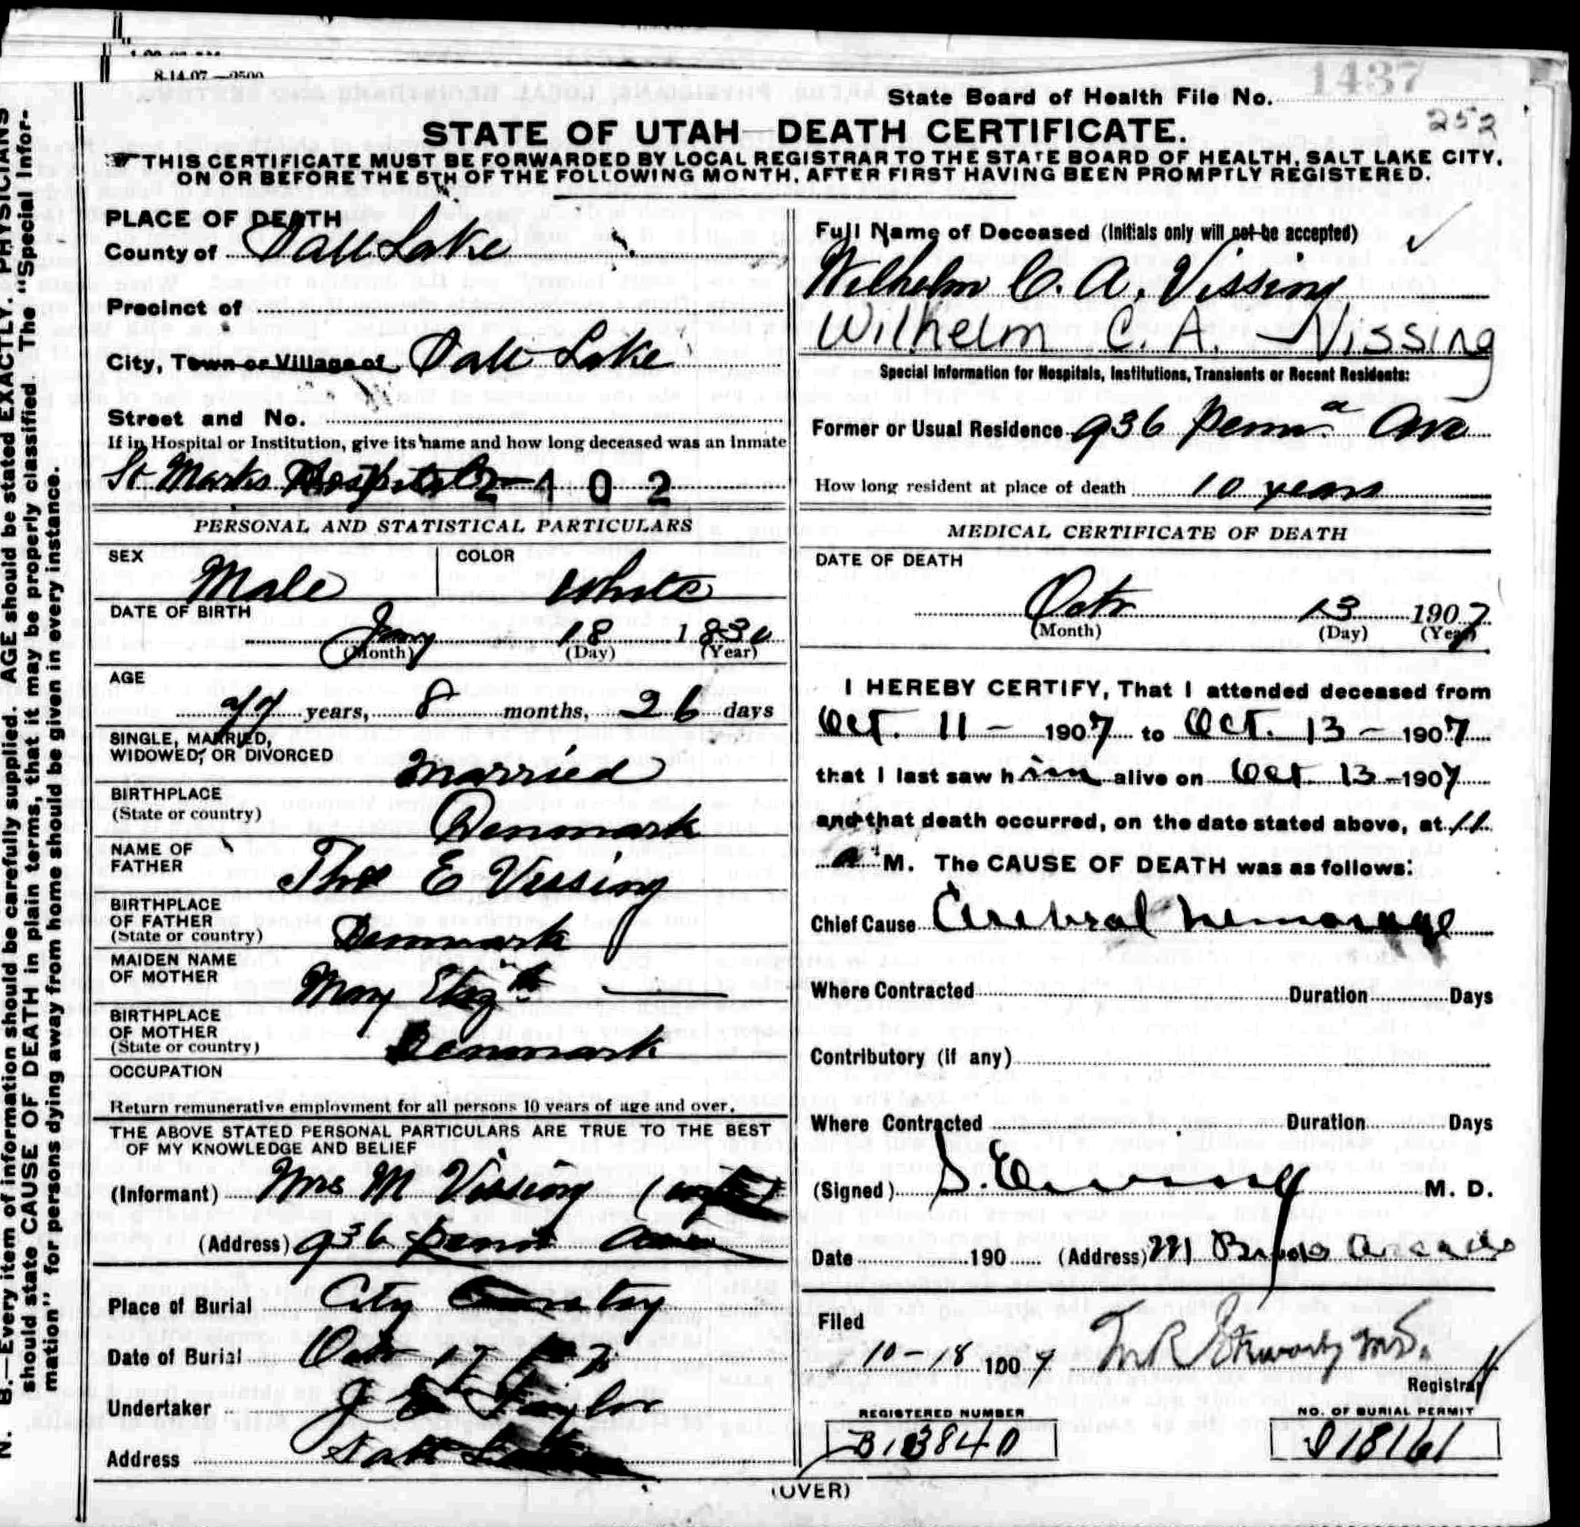 8-14-07—2500
State Board of Health File No. 1437
252
STATE OF UTAH—DEATH CERTIFICATE.
☞THIS CERTIFICATE MUST BE FORWARDED BY LOCAL REGISTRAR TO THE STATE BOARD OF HEALTH, SALT LAKE CITY,
ON OR BEFORE THE 5TH OF THE FOLLOWING MONTH, AFTER FIRST HAVING BEEN PROMPTLY REGISTERED.
N. B.—Every item of information should be carefully supplied. AGE should be stated EXACTLY. PHYSICIANS
should state CAUSE OF DEATH in plain terms, that it may be properly classified. The "Special Infor-
mation" for persons dying away from home should be given in every instance.
PLACE OF DEATH
County of Salt Lake
Precinct of
City, Town or Village of Salt Lake
Street and No.
If in Hospital or Institution, give its name and how long deceased was an Inmate
St Marks Hospital 2402
PERSONAL AND STATISTICAL PARTICULARS
SEX Male COLOR White
DATE OF BIRTH
Jany 18 1830
(Month) (Day) (Year)
AGE
77 years, 8 months, 26 days
SINGLE, MARRIED,
WIDOWED, OR DIVORCED Married
BIRTHPLACE
(State or country) Denmark
NAME OF
FATHER Thos E Vissing
BIRTHPLACE
OF FATHER
(State or country) Denmark
MAIDEN NAME
OF MOTHER Mary Elizth
BIRTHPLACE
OF MOTHER
(State or country) Denmark
OCCUPATION
Return remunerative employment for all persons 10 years of age and over.
THE ABOVE STATED PERSONAL PARTICULARS ARE TRUE TO THE BEST
OF MY KNOWLEDGE AND BELIEF
(Informant) Mrs M Vissing (wife)
(Address) 936 Penna Ave
Place of Burial City Cemetery
Date of Burial Octr 17 1907
Undertaker Taylor
Address Salt Lake
Full Name of Deceased (Initials only will not be accepted)
Wilhelm C. A. Vissing
Wilhelm C. A. Vissing
Special Information for Hospitals, Institutions, Transients or Recent Residents:
Former or Usual Residence 936 Penna Ave
How long resident at place of death 10 years
MEDICAL CERTIFICATE OF DEATH
DATE OF DEATH
Octr 13 1907
(Month) (Day) (Year)
I HEREBY CERTIFY, That I attended deceased from
Oct. 11 - 1907 to Oct. 13 - 1907
that I last saw him alive on Oct 13 - 1907
and that death occurred, on the date stated above, at 11
a M. The CAUSE OF DEATH was as follows:
Chief Cause Cerebral hemorage
Where Contracted Duration Days
Contributory (if any)
Where Contracted Duration Days
(Signed) M. D.
Date 190 (Address)
Filed
10-18 1907
Registrar
REGISTERED NUMBER
B13840
NO. OF BURIAL PERMIT
D18161
(OVER)